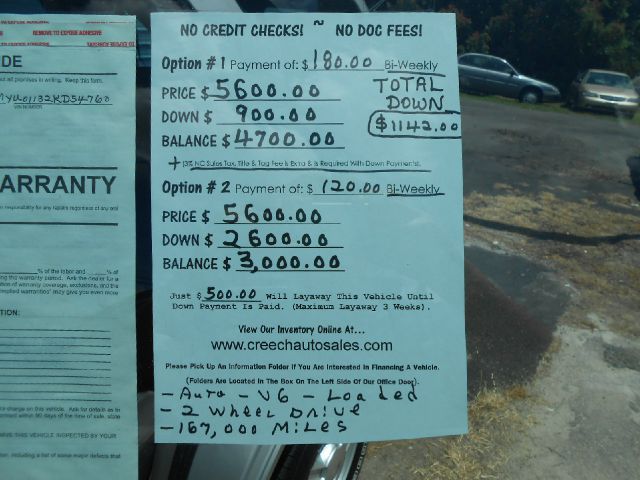 REMOVE TO EXPOSE ADHESIVE
DE
all promises in writing. Keep this form.
VIN NUMBER
ARRANTY
responsibility for any repairs regardless of any oral
% of the labor and % of
ng the warranty period. Ask the dealer for a
implied warranties" may give you even more
TION:
NO CREDIT CHECKS! ~ NO DOC FEES!
Option # 1 Payment of: $ 180.00 Bi-Weekly
PRICE $ 5600.00
DOWN $ 900.00
BALANCE $ 4700.00
TOTAL
DOWN
$1142.00
+ (3% NC Sales Tax, Title & Tag Fee Is Extra & Is Required With Down Payments).
Option # 2 Payment of: $ 120.00 Bi-Weekly
PRICE $ 5600.00
DOWN $ 2600.00
BALANCE $ 3,000.00
Just $ 500.00 Will Layaway This Vehicle Until
Down Payment Is Paid. (Maximum Layaway 3 Weeks).
View Our Inventory Online At...
www.creechautosales.com
Please Pick Up An Information Folder If You Are Interested In Financing A Vehicle.
(Folders Are Located In The Box On The Left Side Of Our Office Door).
- Auto - V6 - Loaded
- 2 Wheel Drive
- 167,000 Miles